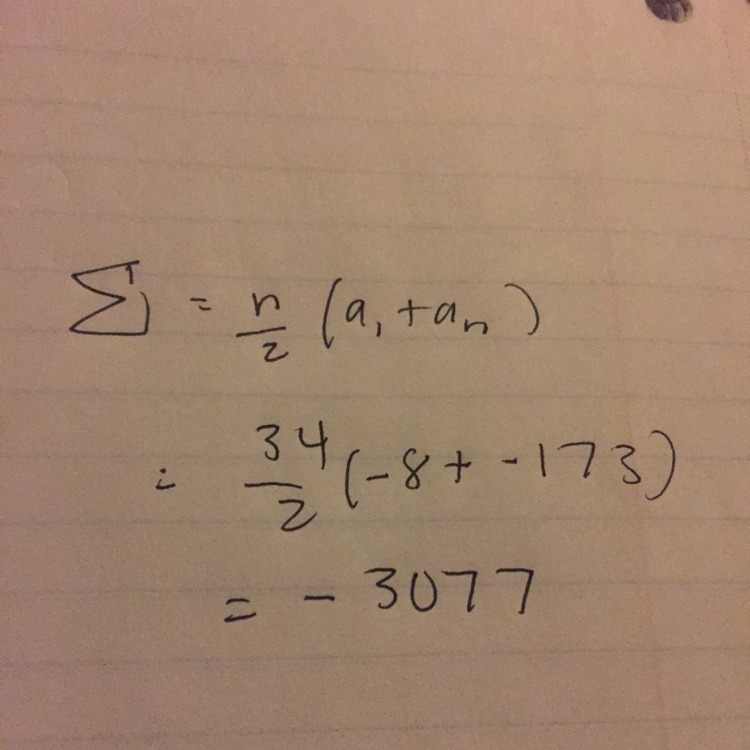 ∑ = n/2 (a₁ + aₙ)
= 34/2 (-8 + -173)
= - 3077